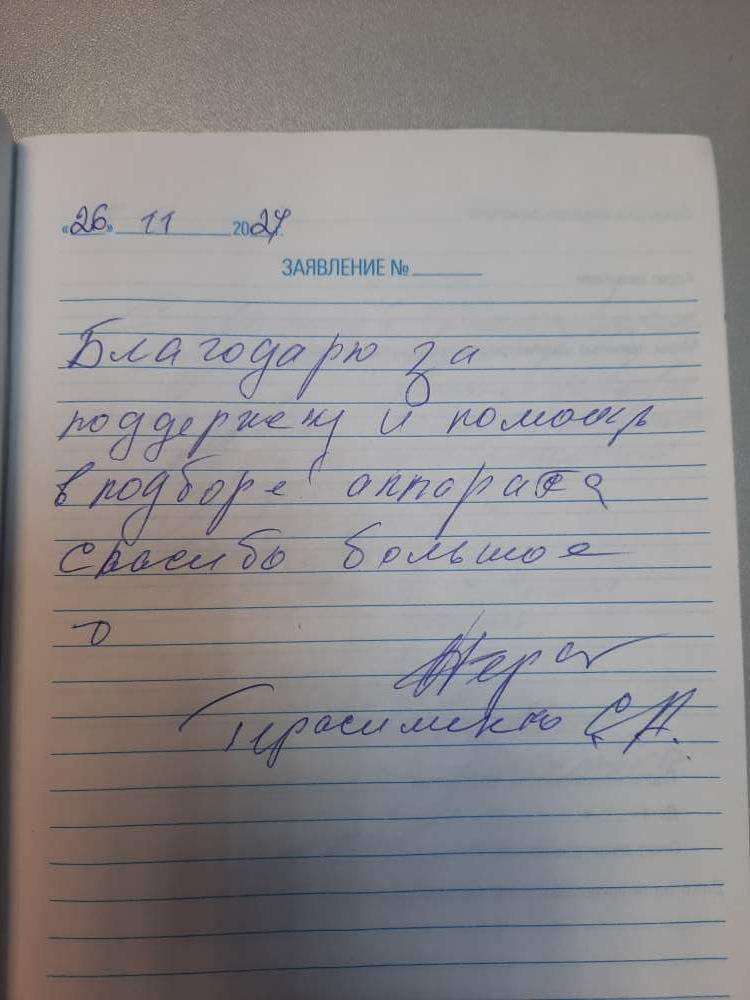 «26» 11 2024г.
ЗАЯВЛЕНИЕ №
Благодарю за
поддержку и помощь
в подборе аппарата
спасибо большое
Герасименко С.А.